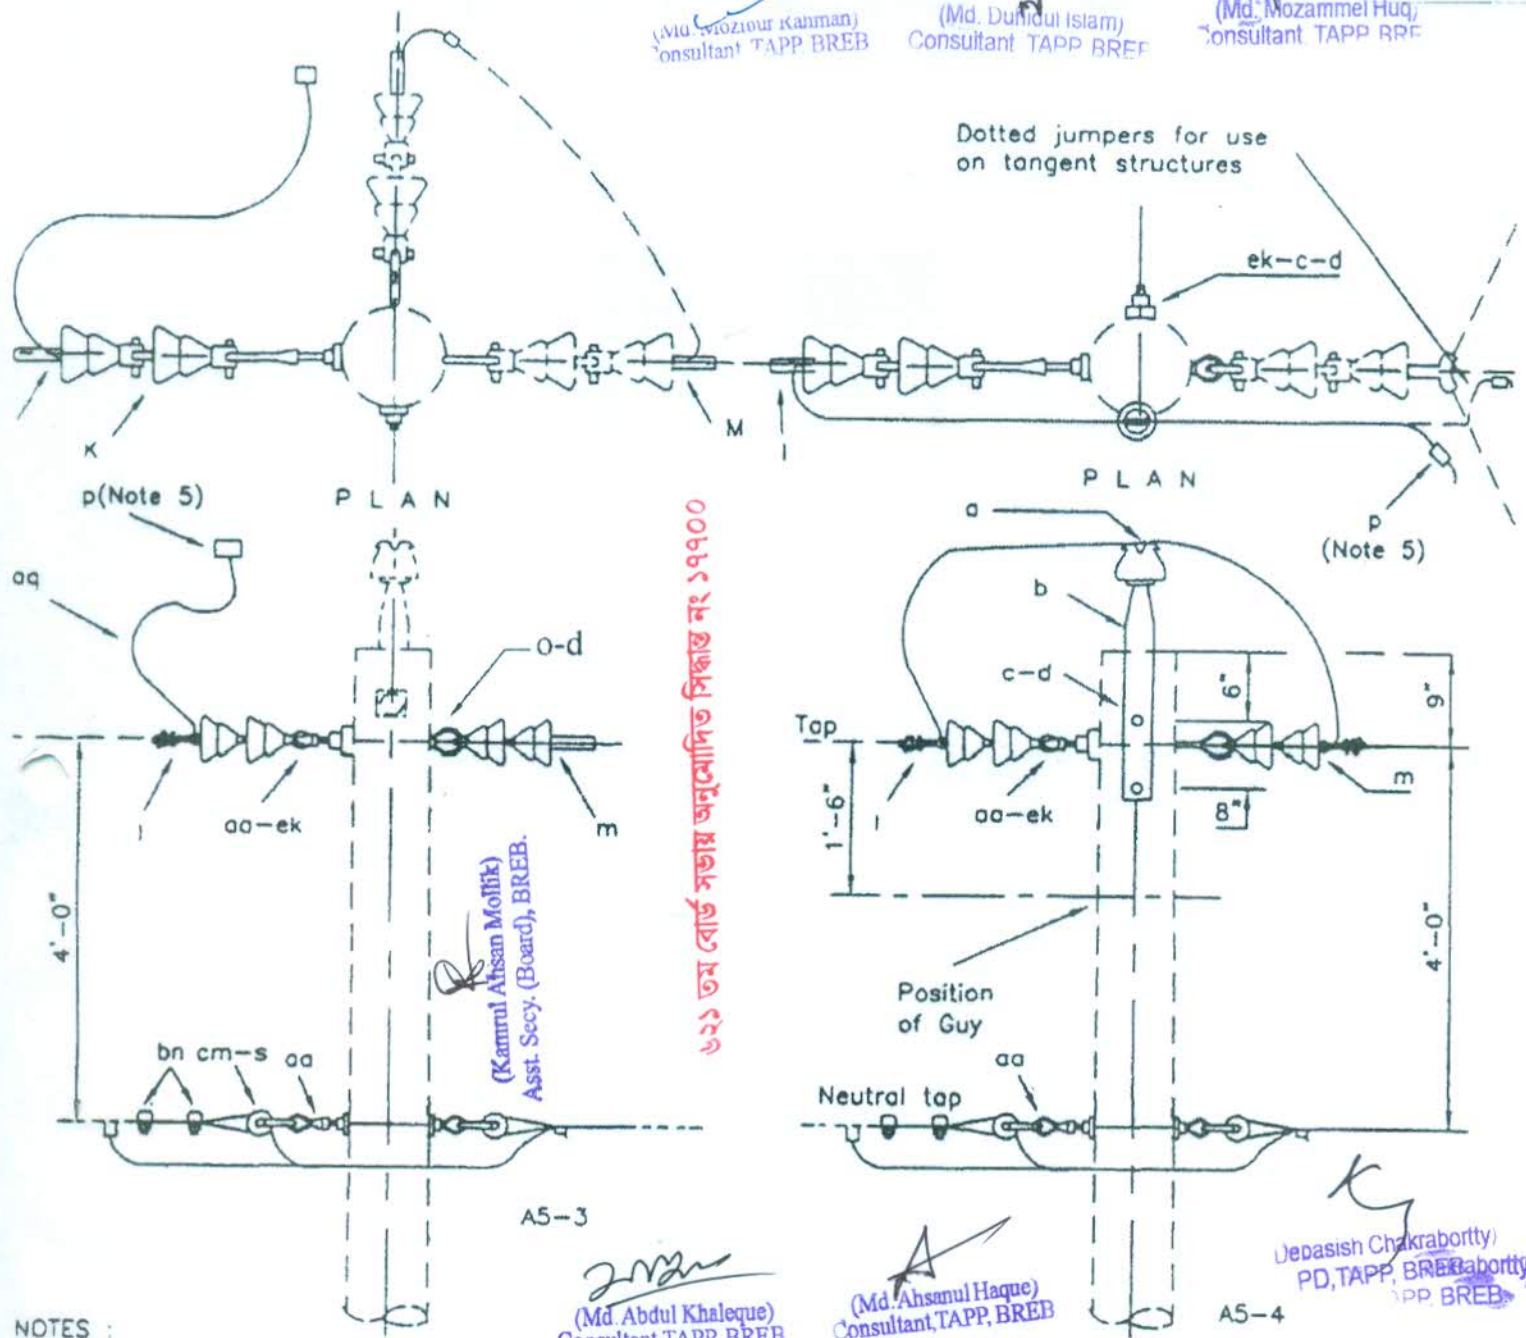 (Md. Moziour Rahman)
Consultant TAPP. BREB
(Md. Duhidul Islam)
Consultant TAPP BREB
(Md. Mozammel Huq)
Consultant TAPP BRE
Dotted jumpers for use
on tangent structures
ek-c-d
K
M
l
p(Note 5)
PLAN
PLAN
p
(Note 5)
a
b
c-d
aq
o-d
6"
9"
Tap
l
aa-ek
m
l
aa-ek
m
8"
1'-6"
4'-0"
4'-0"
(Kamrul Ahsan Mollik)
Asst. Secy. (Board), BREB.
৬২১ তম বোর্ড সভায় অনুমোদিত সিদ্ধান্ত নং ১৭৭০০
Position
of Guy
bn cm-s aa
aa
Neutral tap
A5-3
A5-4
(Md. Abdul Khaleque)
Consultant TAPP, BREB
(Md. Ahsanul Haque)
Consultant, TAPP, BREB
Debasish Chakrabortty)
PD, TAPP, BREB
NOTES :